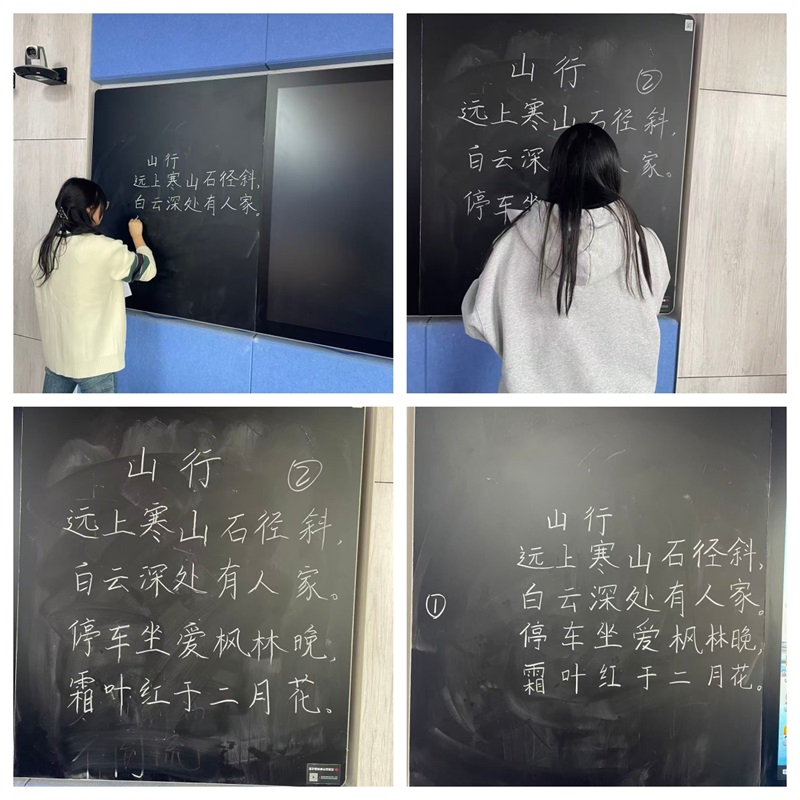 山行
远上寒山石径斜，
白云深处有人家。
山行
②
远上寒山石径斜，
白云深 人家。
停车坐
山行
②
远上寒山石径斜，
白云深处有人家。
停车坐爱枫林晚，
霜叶红于二月花。
山行
远上寒山石径斜，
①
白云深处有人家。
停车坐爱枫林晚，
霜叶红于二月花。